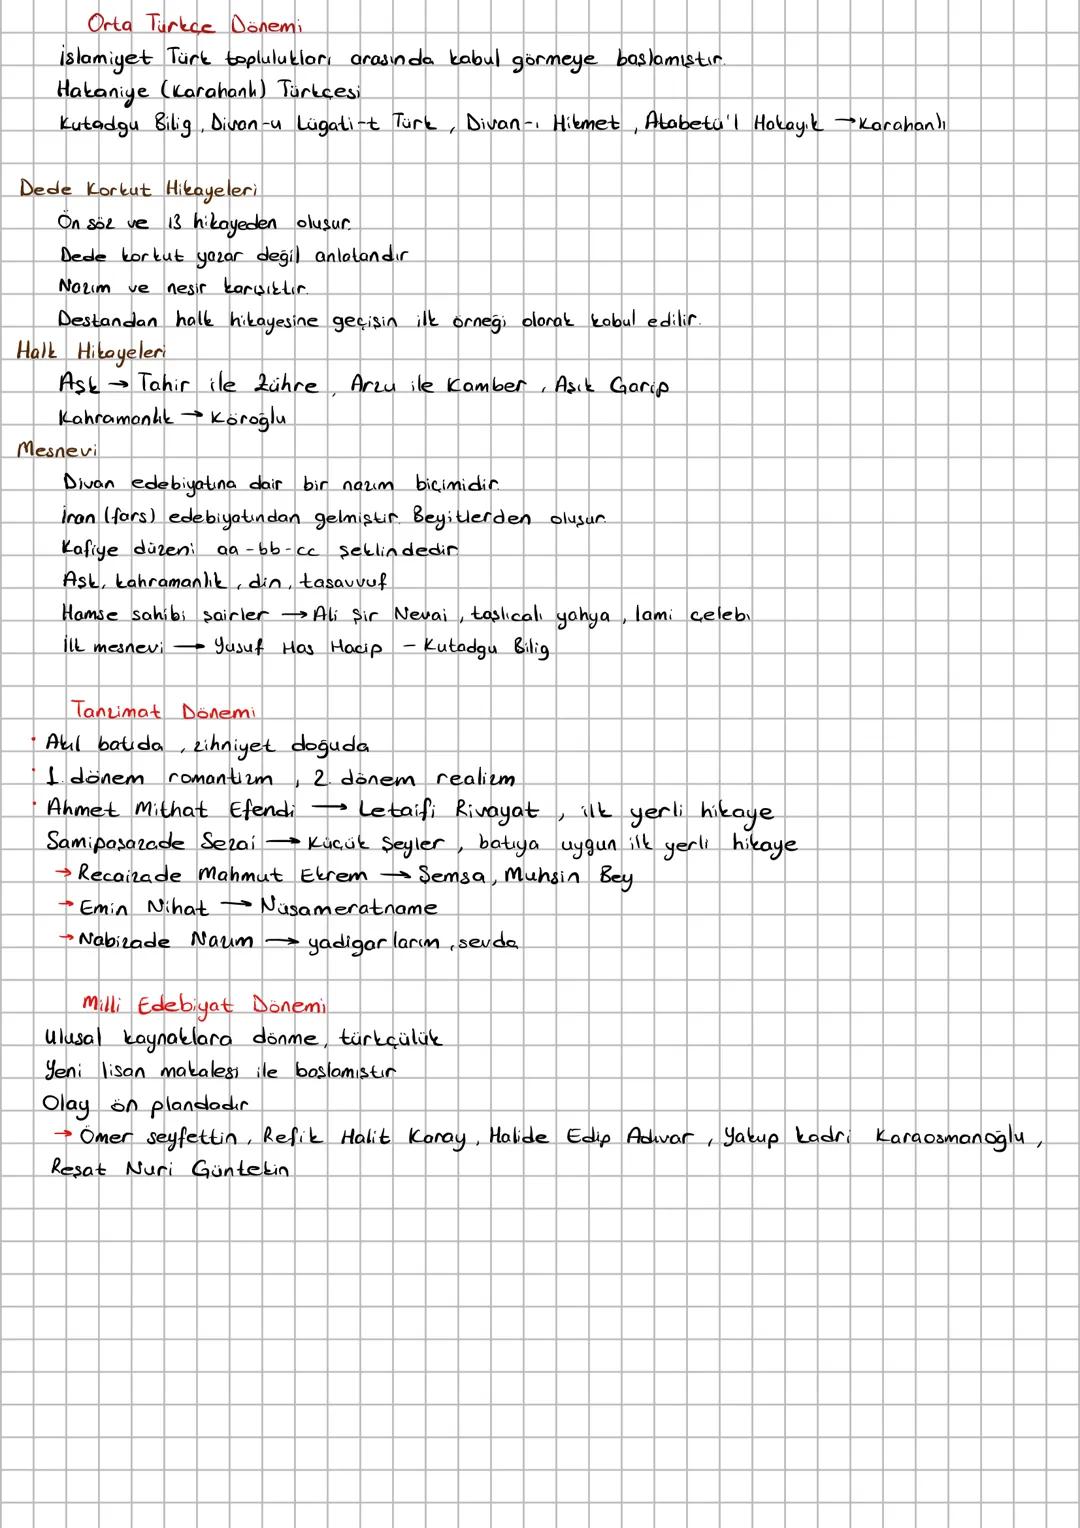 Orta Türkçe Dönemi
İslamiyet Türk toplulukları arasında kabul görmeye başlamıştır.
Hakaniye (Karahanlı) Türkçesi
Kutadgu Bilig, Divan-u Lügati-t Türk, Divan-ı Hikmet, Atabetü'l Hakayık → Karahanlı
Dede Korkut Hikayeleri
Ön söz ve 13 hikayeden oluşur.
Dede korkut yazar değil anlatandır
Nazım ve nesir karışıktır.
Destandan halk hikayesine geçişin ilk örneği olarak kabul edilir.
Halk Hikayeleri
Aşk → Tahir ile Zühre, Arzu ile Kamber, Aşık Garip
Kahramanlık → Köroğlu
Mesnevi
Divan edebiyatına dair bir nazım biçimidir.
İran (fars) edebiyatından gelmiştir. Beyitlerden oluşur.
Kafiye düzeni aa-bb-cc şeklindedir
Aşk, kahramanlık, din, tasavvuf
Hamse sahibi şairler → Ali Şir Nevai, taşlıcalı yahya, lami çelebi
İlk mesnevi → Yusuf Has Hacip - Kutadgu Bilig
Tanzimat Dönemi
• Akıl batıda, zihniyet doğuda
• 1. dönem romantizm, 2. dönem realizm
• Ahmet Mithat Efendi → Letaifi Rivayat, ilk yerli hikaye
Samipaşazade Sezai → Küçük Şeyler, batıya uygun ilk yerli hikaye
→ Recaizade Mahmut Ekrem → Şemsa, Muhsin Bey
→ Emin Nihat → Nüsameratname
→ Nabizade Nazım → yadigarlarım, sevda
Milli Edebiyat Dönemi
Ulusal kaynaklara dönme, türkçülük
Yeni lisan makalesi ile başlamıştır
Olay ön plandadır
→ Ömer seyfettin, Refik Halit Karay, Halide Edip Adıvar, Yakup kadri Karaosmanoğlu,
Reşat Nuri Güntekin